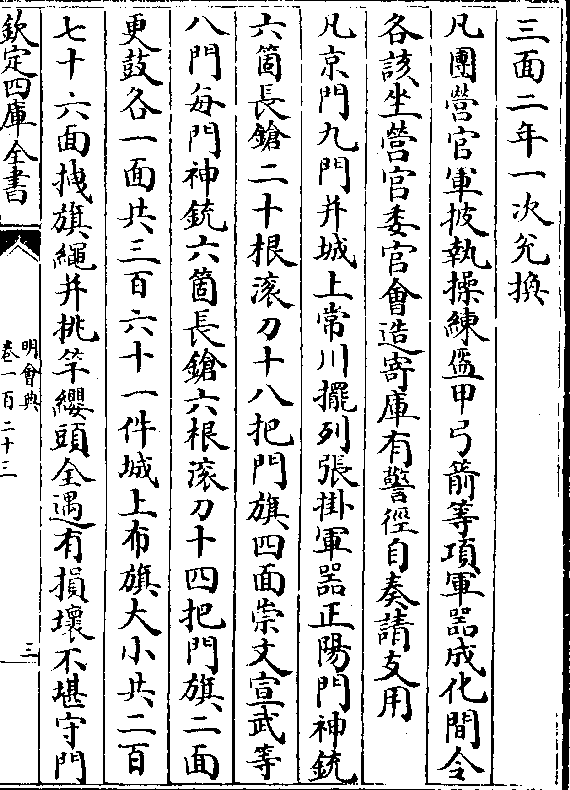 三面二年一次兊換
凡團營官軍披執操練盔甲弓箭等項軍器成化間令
各該坐營官委官會造寄庫有警徑自奏請支用
凡京門九門并城上常川擺列張掛軍器正陽門神銃
六箇長鎗二十根滚刀十八把門旗四面崇文宣武等
八門每門神銃六箇長鎗六根滚刀十四把門旗二面
更鼓各一面共三百六十一件城上布旗大小共二百
七十六面拽旗繩并挑竿纓頭全遇有損壞不堪守門
欽定四庫全書
明會典
卷一百二十三
三